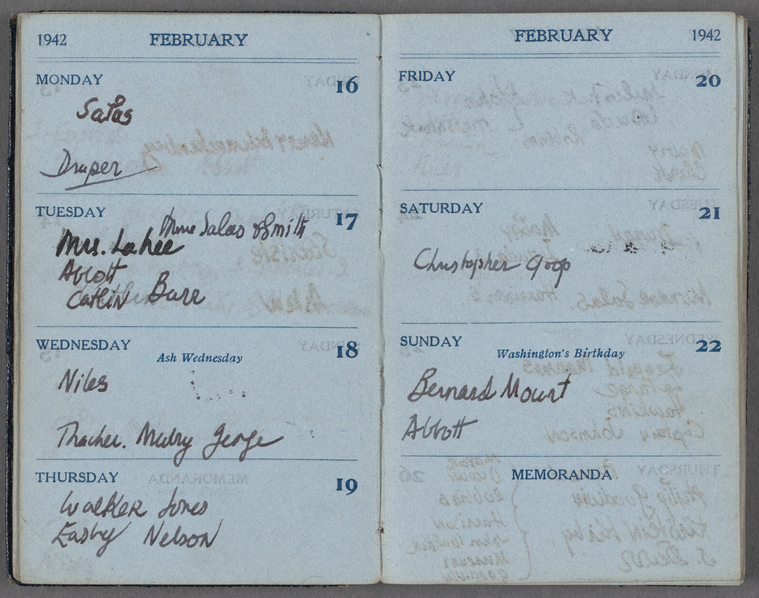 1942 FEBRUARY
MONDAY 16
Salas
Draper
TUESDAY 17
Salas Smith
Mrs. Lahee
Abbott
Catlin Barr
WEDNESDAY 18
Ash Wednesday
Niles
Thacher. George
THURSDAY 19
Walker Jones
Easby Nelson
FEBRUARY 1942
FRIDAY 20
SATURDAY 21
Christopher Goop
SUNDAY 22
Washington's Birthday
Bernard Mount
Abbott
MEMORANDA